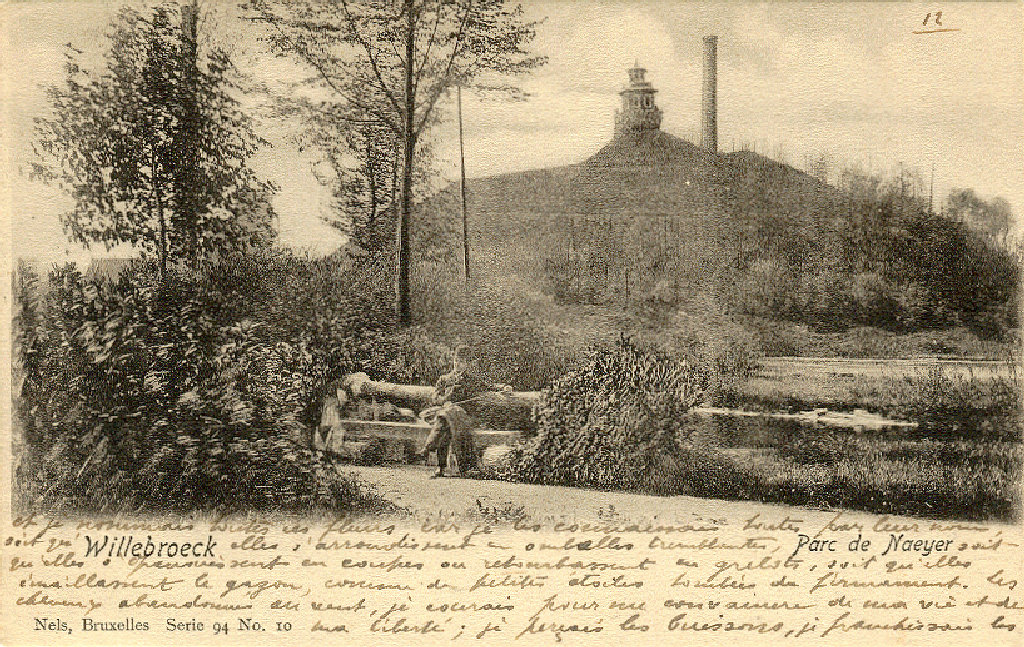 12
et je nommais toutes ces fleurs car je les connaissais toutes par leur nom
soit qu' Willebroeck elles s'arrondissent en ombelles tremblantes, Parc de Naeyer soit
qu'elles s'épanouissent en coupes ou retombassent en grelots, soit qu'elles
émaillassent le gazon, comme de petites étoiles tombées du firmament. Les
cheveux abandonnés au vent, je courais pour me convaincre de ma vie et de
Nels, Bruxelles Serie 94 No. 10 ma liberté ; je perçais les buissons, je franchissais les